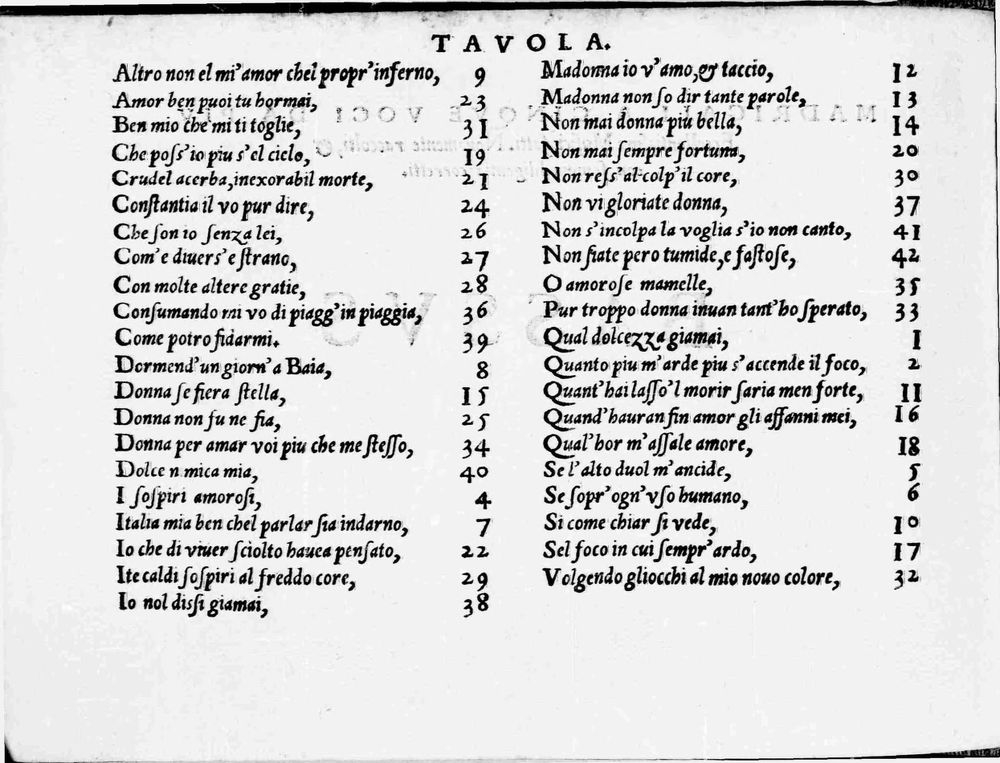 TAVOLA.
Altro non el mi'amor chel propr'inferno, 9
Amor ben puoi tu hormai, 23
Ben mio che mi ti toglie, 31
Che poss'io piu s'el cielo, 19
Crudel acerba, inexorabil morte, 21
Constantia il vo pur dire, 24
Che son io senza lei, 26
Com'e diuers'e strano, 27
Con molte altere gratie, 28
Consumando mi vo di piagg'in piaggia, 36
Come potro fidarmi. 39
Dormend'un giorn'a Baia, 8
Donna se fiera stella, 15
Donna non fu ne fia, 25
Donna per amar voi piu che me stesso, 34
Dolce n mica mia, 40
I sospiri amorosi, 4
Italia mia ben chel parlar sia indarno, 7
Io che di viuer sciolto hauea pensato, 22
Ite caldi sospiri al freddo core, 29
Io nol dissi giamai, 38
Madonna io v'amo, & taccio, 12
Madonna non so dir tante parole, 13
Non mai donna piu bella, 14
Non mai sempre fortuna, 20
Non ress'al colp'il core, 30
Non vi gloriate donna, 37
Non s'incolpa la voglia s'io non canto, 41
Non siate pero tumide, e fastose, 42
O amorose mamelle, 35
Pur troppo donna inuan tant'ho sperato, 33
Qual dolcezza giamai, 1
Quanto piu m'arde piu s'accende il foco, 2
Quant'hai lasso'l morir saria men forte, 11
Quand'hauran fin amor gli affanni mei, 16
Qual'hor m'assale amore, 18
Se l'alto duol m'ancide, 5
Se sopr'ogn'vso humano, 6
Si come chiar si vede, 10
Sel foco in cui sempr'ardo, 17
Volgendo gliocchi al mio nouo colore, 32